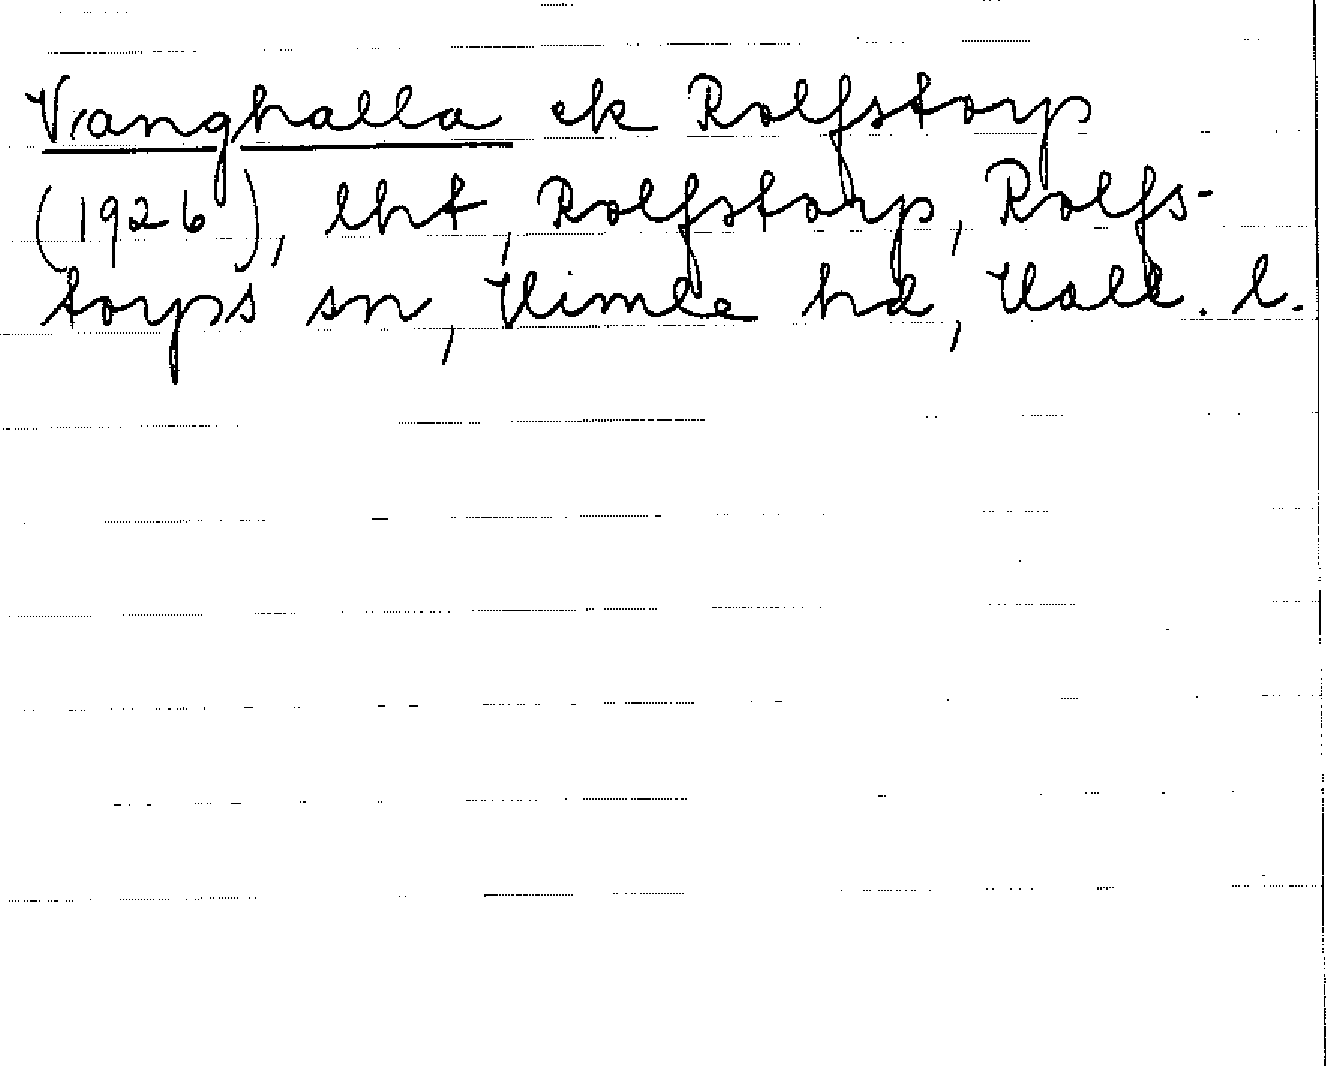 Vranghalla ek Rolfstorp
(1926), lht, Rolfstorp, Rolfs-
torps sn, Himle hd, Hall. l.